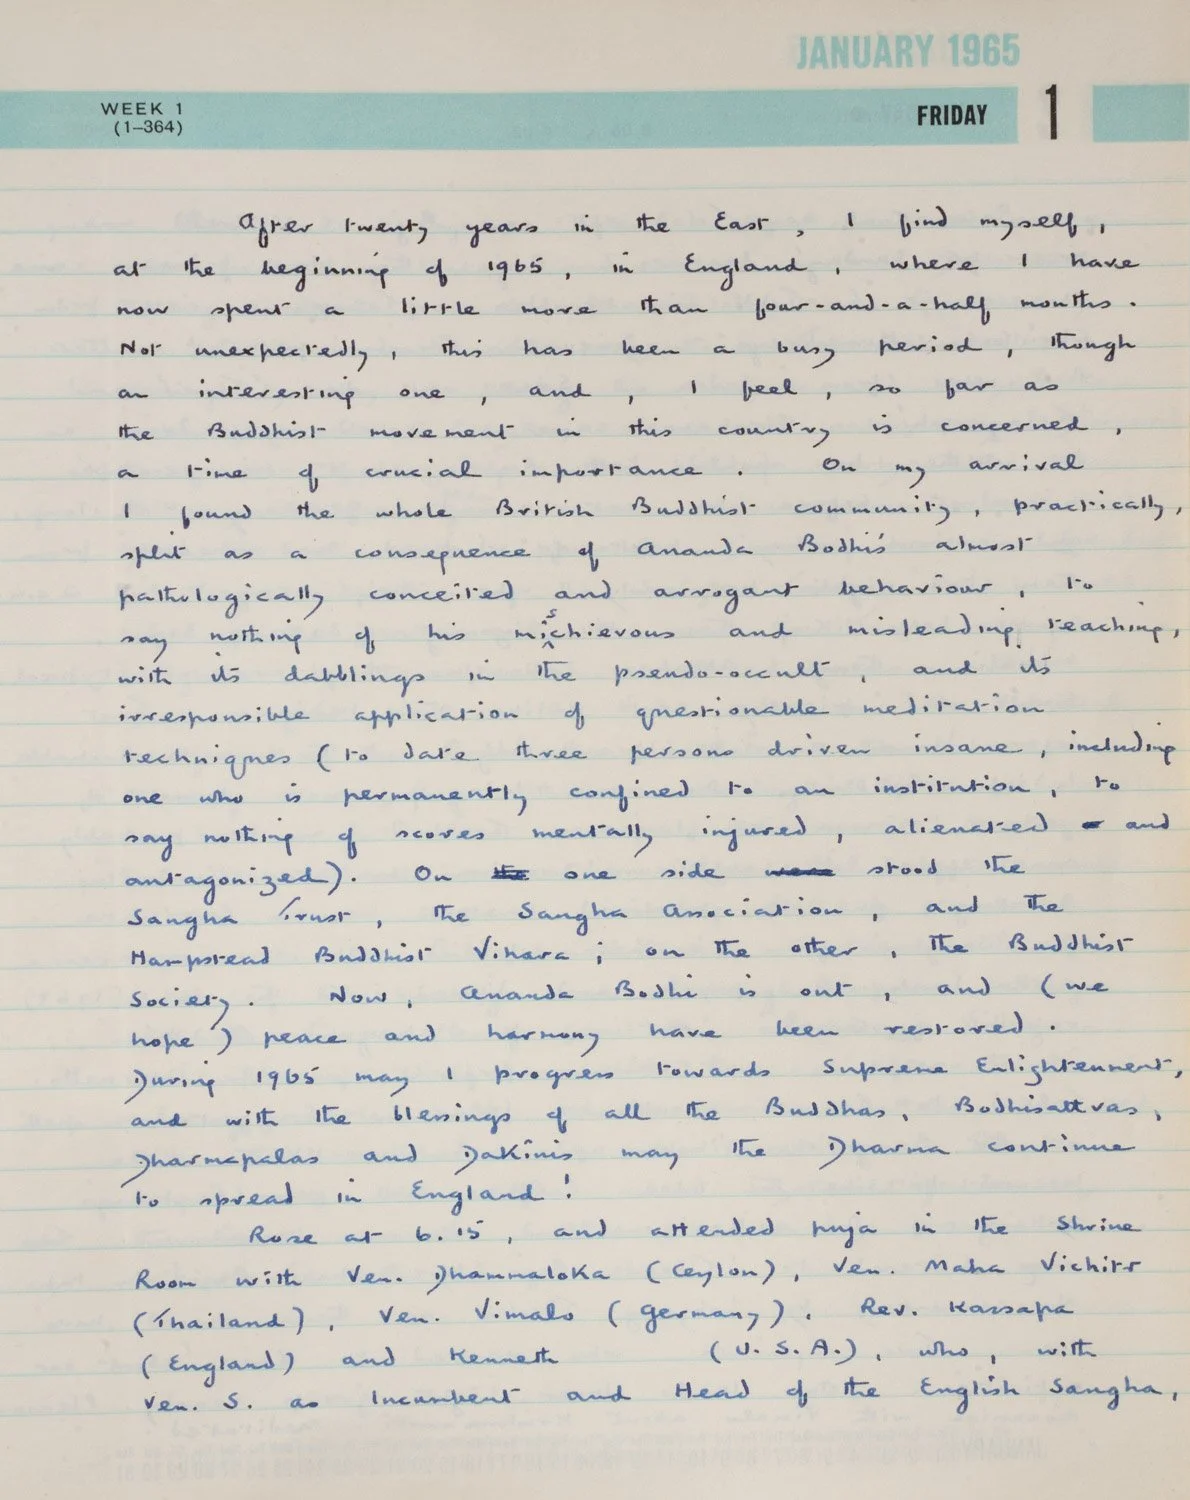 JANUARY 1965
WEEK 1
(1–364)
FRIDAY 1
After twenty years in the East, I find myself,
at the beginning of 1965, in England, where I have
now spent a little more than four-and-a-half months.
Not unexpectedly, this has been a busy period, though
an interesting one, and, I feel, so far as
the Buddhist movement in this country is concerned,
a time of crucial importance. On my arrival
I found the whole British Buddhist community, practically,
split as a consequence of Ananda Bodhi's almost
pathologically conceited and arrogant behaviour, to
say nothing of his mischievous and misleading teaching,
with its dabblings in the pseudo-occult, and its
irresponsible application of questionable meditation
techniques (to date three persons driven insane, including
one who is permanently confined to an institution, to
say nothing of scores mentally injured, alienated and
antagonized). On the one side were stood the
Sangha Trust, the Sangha Association, and the
Hampstead Buddhist Vihara; on the other, the Buddhist
Society. Now, Ananda Bodhi is out, and (we
hope) peace and harmony have been restored.
During 1965 may I progress towards Supreme Enlightenment,
and with the blessings of all the Buddhas, Bodhisattvas,
Dharmapalas and Dakinis may the Dharma continue
to spread in England!
Rose at 6.15, and attended puja in the Shrine
Room with Ven. Dhammaloka (Ceylon), Ven. Maha Vichitr
(Thailand), Ven. Vimalo (Germany), Rev. Kassapa
(England) and Kenneth (U.S.A.), who, with
Ven. S. as Incumbent and Head of the English Sangha,